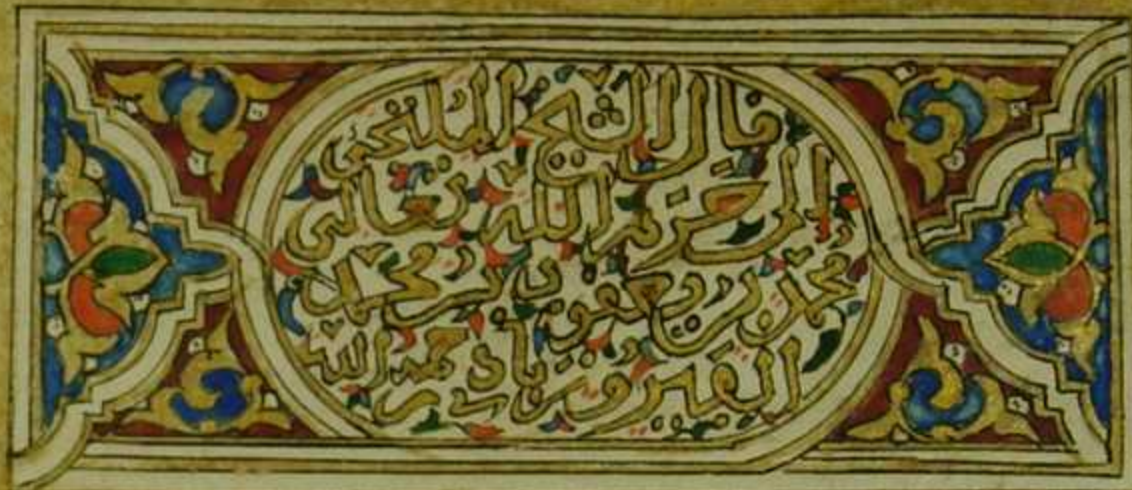 قال الشيخ الملتجئ
إلى حرم الله تعالى
محمد بن يعقوب بن محمد
الفيروزابادي رحمه الله